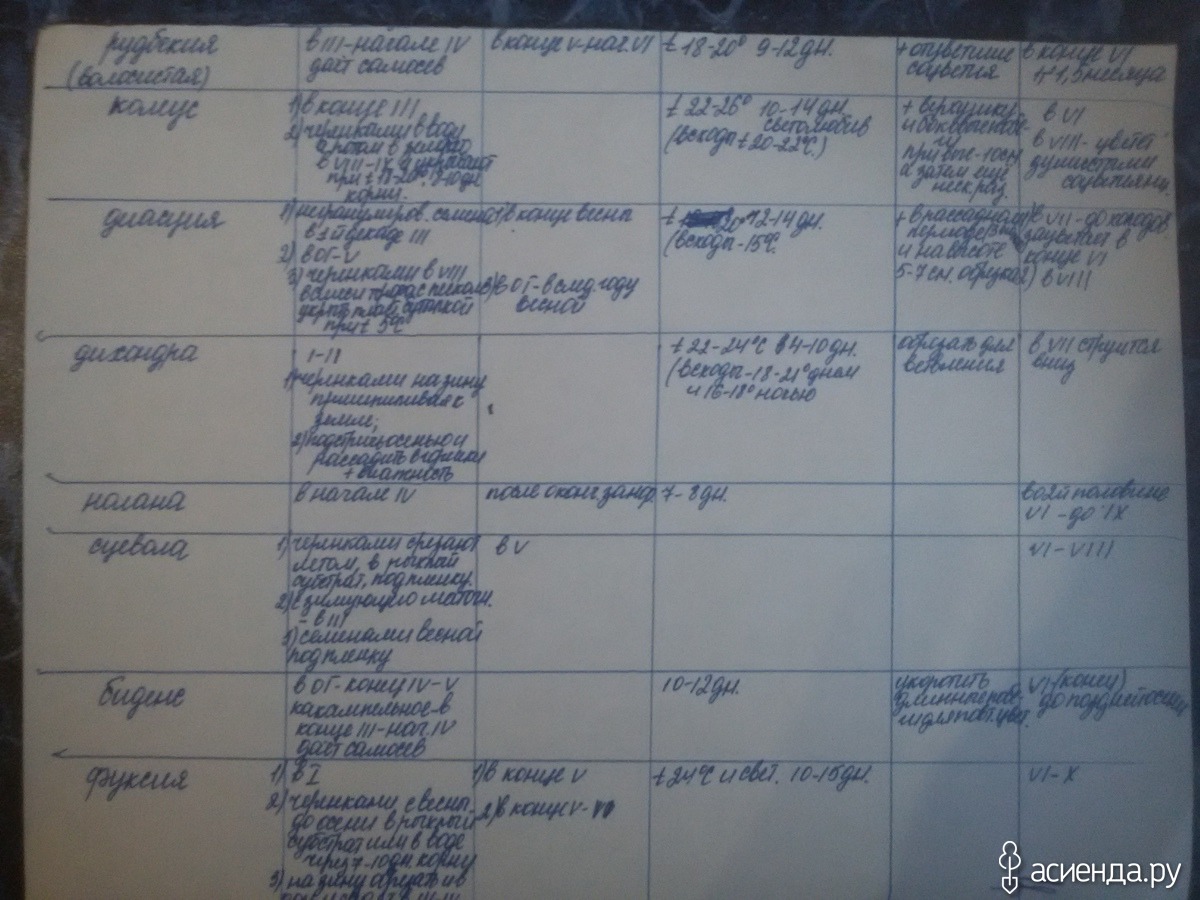 рудбекия
(волосистая)
в III-начале IV
даёт самосев
в конце V-нач. VI
t 18-20° 9-12дн.
+ отцветшие
соцветия
в конце VI
1-1,5 месяца
колеус
1) в конце III
2) черенками в воду
а потом в землю
в VIII-IX
при t 18-20°, 7-10дн
корни.
t 22-26° 10-14 дн.
светолюбив
(всходы t 20-22°C.)
+ верхушку
и боковые
при выс-10см
а затем ещё
неск. раз.
в VI
в VIII-цветёт
душистыми
соцветиями
диасция
1) негранулиров. семена
в 3й декаде III
2) в ОГ-V
3) черенками в VIII
в смеси торфа с песком
при t 5°C
1) в конце весны
3) в ОГ-в след. году
весной
t 20° 12-14 дн.
(всходы-15°C.
+ в рассадном
периоде
и на высоте
5-7см. обрезка
1) в VII-до холодов
зацветает в
конце VI
2) в VIII
дихондра
I-II
1) черенками на зиму
пришпиливая к
земле;
2) подстричь осенью и
рассадить в горшки
+ влажность
t 22-24°C в 4-10 дн.
(всходы-18-21° днем
и 16-18° ночью
обрезать для
ветвления
в VII струится
вниз
нолана
в начале IV
после оконч. замор.
7-8дн.
во 2й половине
VI-до IX
сцевола
1) черенками срезают
летом, в рыхлый
субстрат, под пленку.
2) с зимующего маточн.
- в III
3) семенами весной
под пленку
в V
VI-VIII
биденс
в ОГ-конец IV-V
как ампельное-в
конце III-нач. IV
даёт самосев
10-12дн.
укоротить
длинные поб.
и для повт. цвет.
VI-(конец)
до поздней осени
фуксия
1) в I
2) черенками с весны
до осени в рыхлый
субстрат или в воде
через 7-10дн. корни
3) на зиму обрезать и в
1) в конце V
2) в конце V-VI
t 24°C и свет. 10-15дн.
VI-X
асиенда.ру